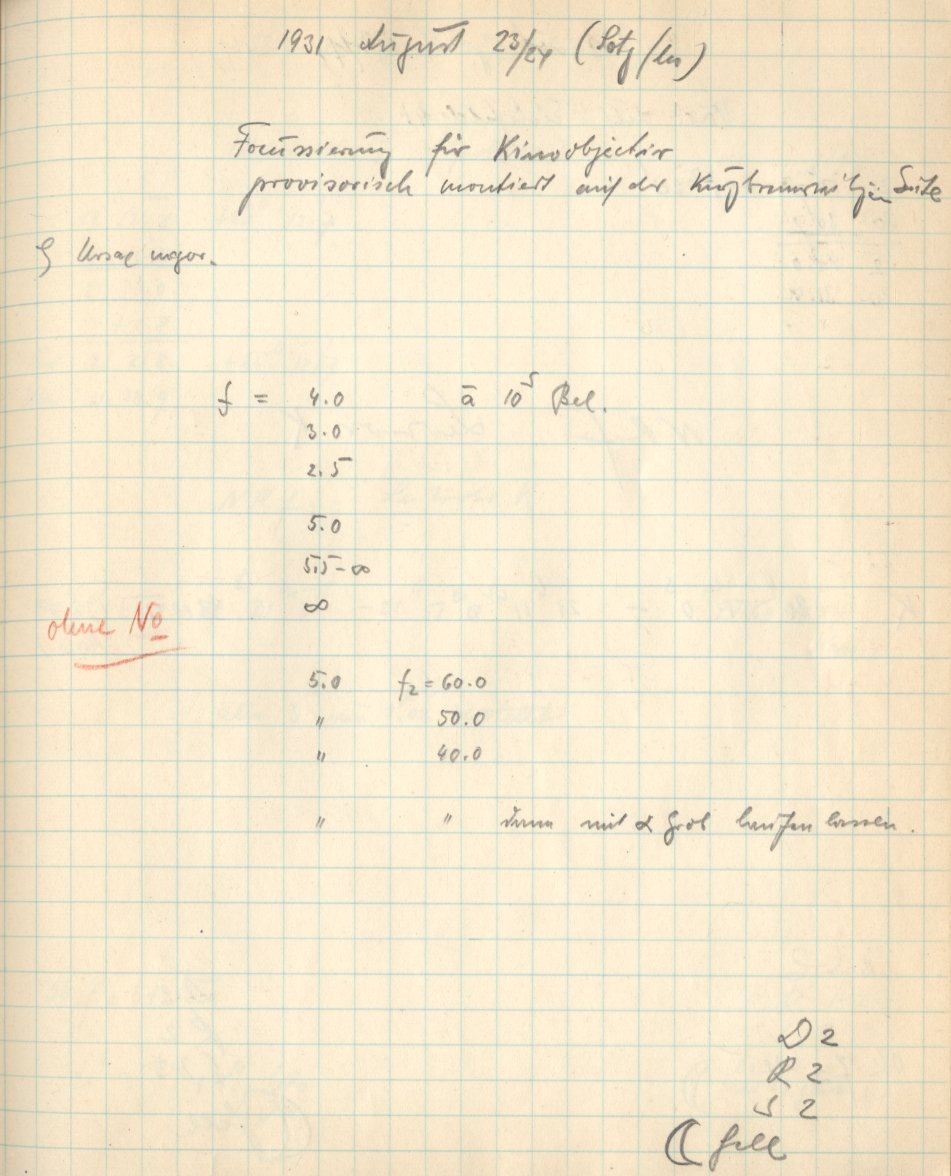 1931 August 23/24 (
Focussierung für Kinoobjectiv
provisorisch montiert auf der Kurzbrennweitigen Seite
ζ Ursae major.
f = 4.0 à 10ˢ Bel.
3.0
2.5
5.0
5.5-∞
∞
ohne No
5.0 f₂ = 60.0
" 50.0
" 40.0
" " dann mit α grob laufen lassen.
D 2
R 2
S 2
☾ hell